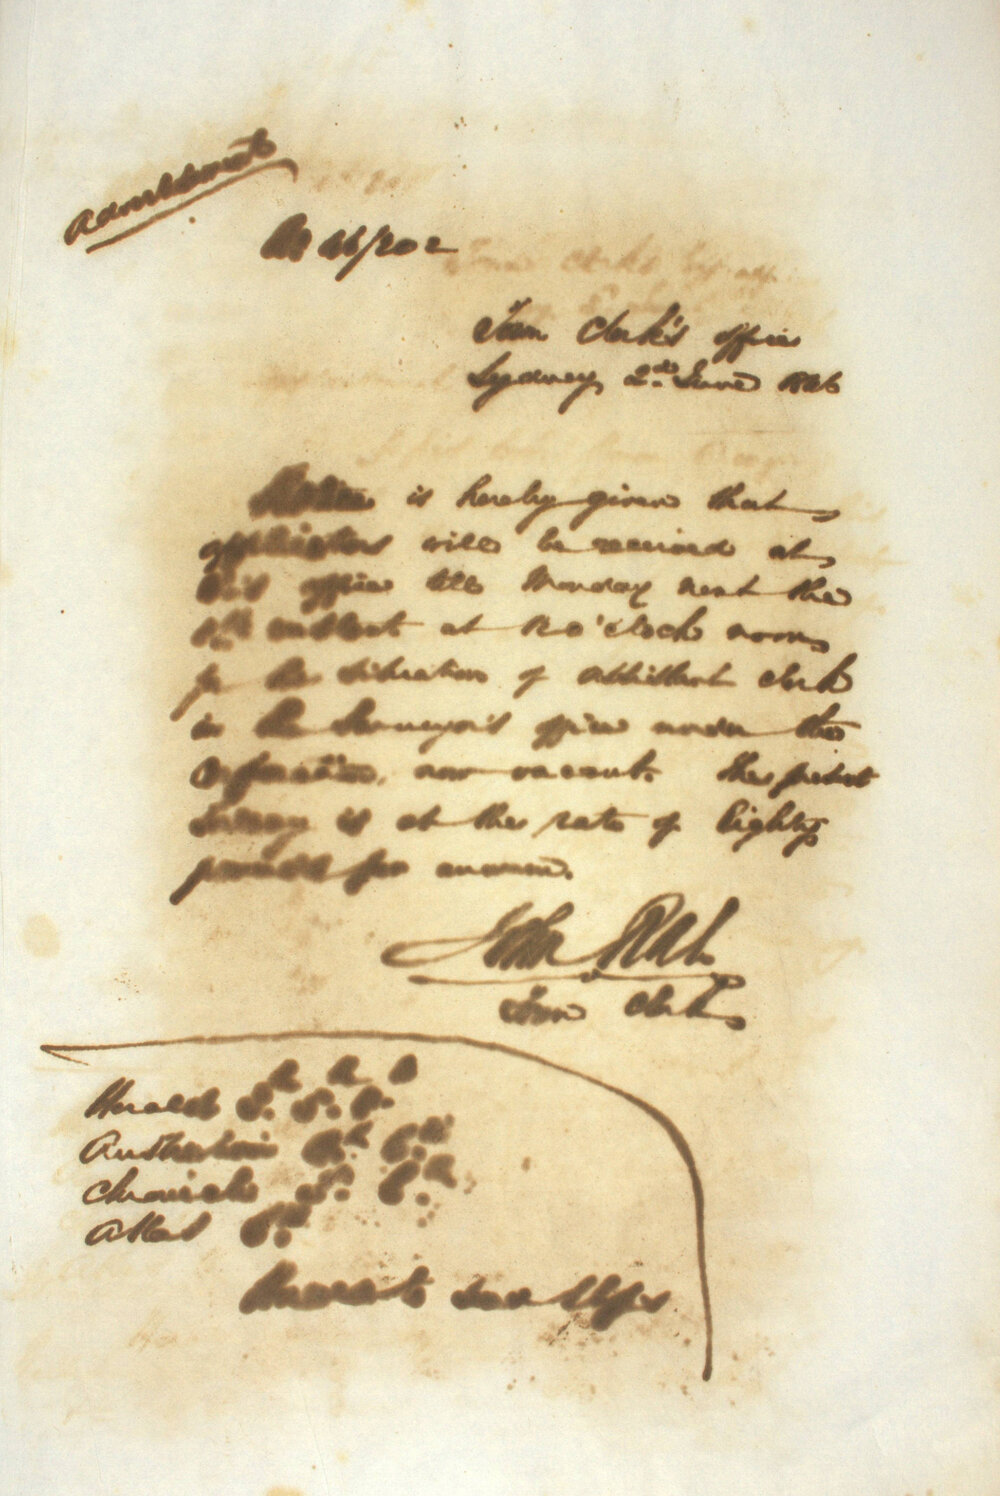 Advertisement
No 46/202
Town Clerk's Office
Sydney 2nd June 1846
Notice is hereby given that
applications will be received at
this office till Monday next the
8th instant at 12 o'clock noon
for the situation of Assistant Clerk
in the Surveyor's office under the
Corporation, now vacant. The present
Salary is at the rate of Eighty
pounds per annum.
John
Town Clerk
Herald
Australian
Chronicle
Atlas